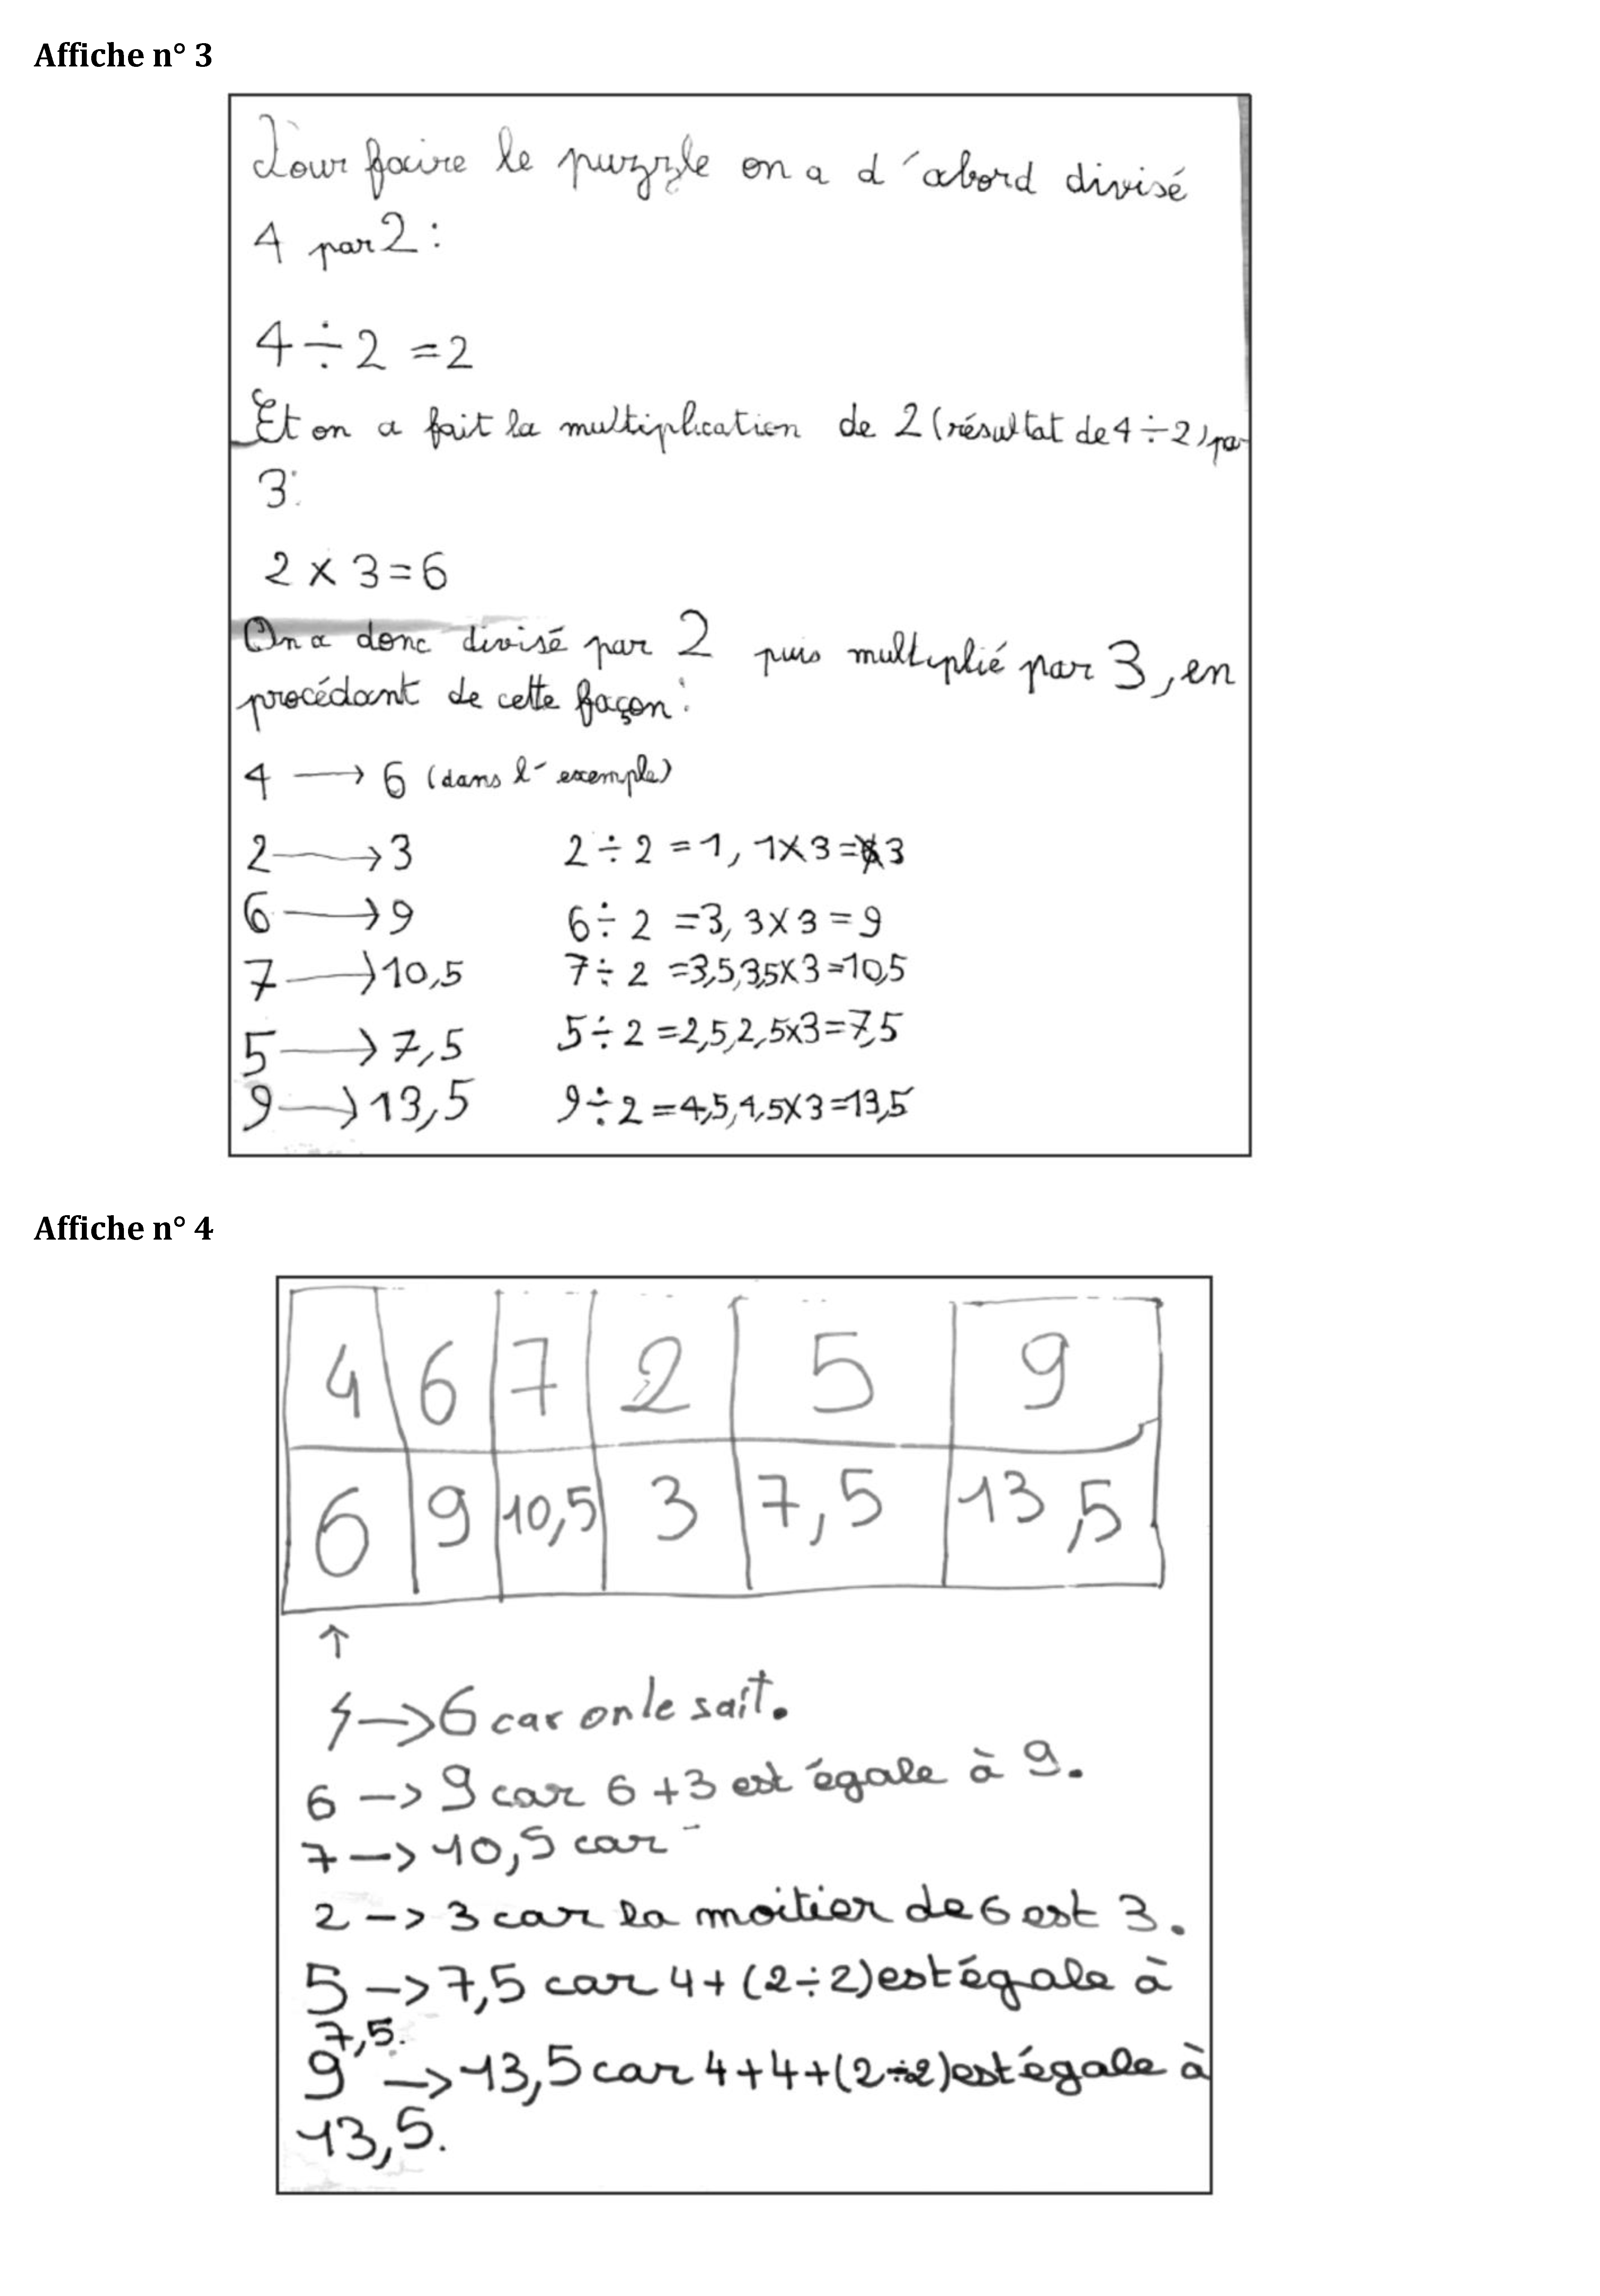 Affiche n° 3
Pour faire le puzzle on a d'abord divisé
4 par 2 :
4 ÷ 2 = 2
Et on a fait la multiplication de 2 (résultat de 4 ÷ 2) par
3:
2 x 3 = 6
On a donc divisé par 2 puis multiplié par 3, en
procédant de cette façon :
4 → 6 (dans l'exemple)
2 → 3 2 ÷ 2 = 1, 1x3 = 3
6 → 9 6 ÷ 2 = 3, 3x3 = 9
7 → 10,5 7 ÷ 2 = 3,5, 3,5x3 = 10,5
5 → 7,5 5 ÷ 2 = 2,5, 2,5x3 = 7,5
9 → 13,5 9 ÷ 2 = 4,5, 4,5x3 = 13,5
Affiche n° 4
4 6 7 2 5 9
6 9 10,5 3 7,5 13,5
↑
4 → 6 car on le sait.
6 → 9 car 6 + 3 est égale à 9.
7 → 10,5 car
2 → 3 car la moitier de 6 est 3.
5 → 7,5 car 4 + (2÷2) est égale à
7,5.
9 → 13,5 car 4 + 4 + (2÷2) est égale à
13,5.